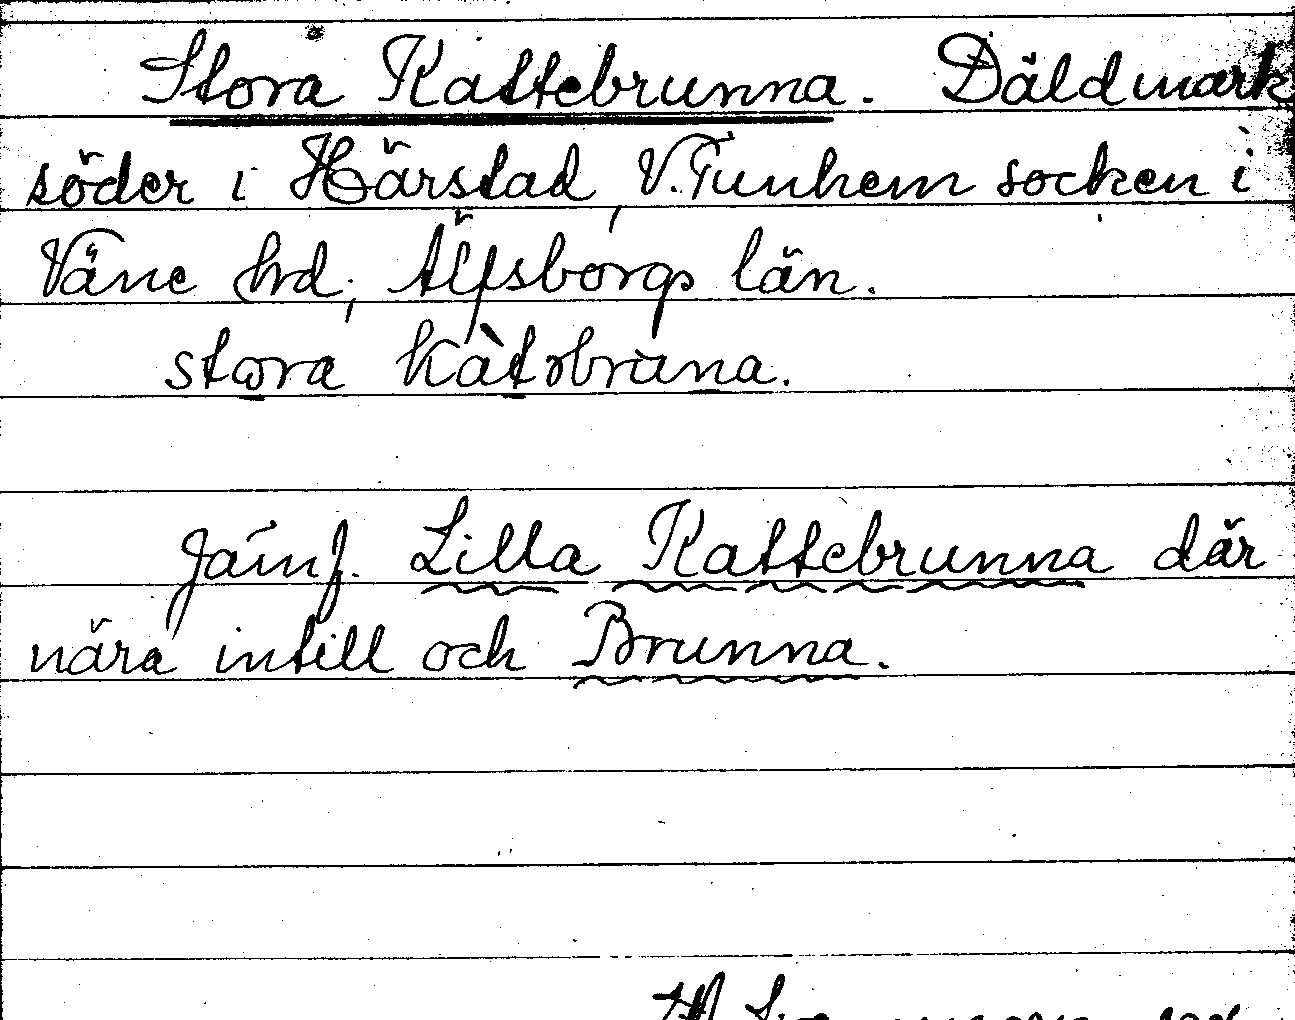 Stora Kattebrunna. Däldmark
söder i Härstad, V. Tunhem socken i
Väne hrd, Älfsborgs län.
stora
Jämf. Lilla Kattebrunna där
nära intill och Brunna.